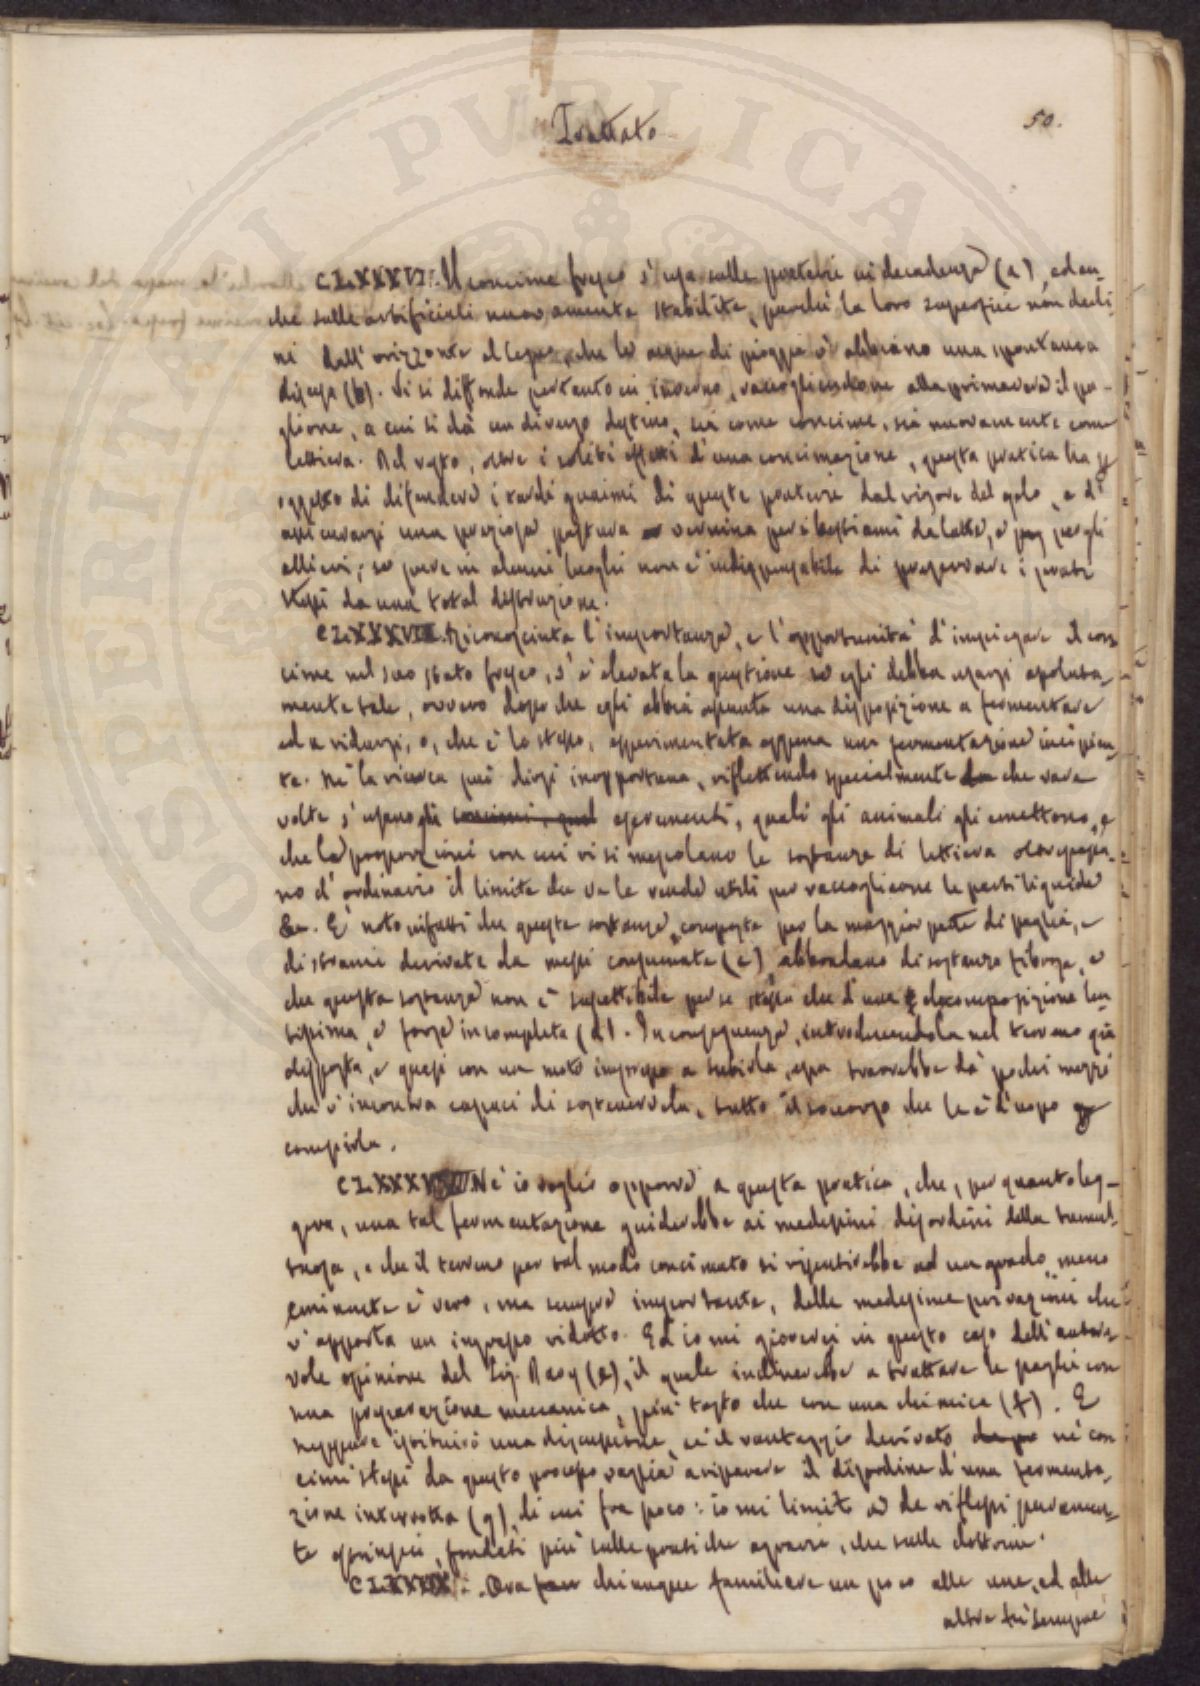 Trattato
50.
CLXXXVI. Il concime fresco s'usa sulle praterie in decadenza (a), ed an-
che sulle artificiali nuovamente stabilite, perchè la loro superficie non decli-
ni dall'orizzonte che le acque di pioggia v'abbiano una spontanea
discesa (b). Vi si diffonde pertanto in inverno, raccogliendone alla primavera il pa-
glione, a cui si dà un diverso destino, sia come concime, sia nuovamente come
lettiera. Del resto, oltre i soliti effetti d'una concimazione, questa pratica ha p
oggetto di difendere i tardi guaimi di queste praterie dal rigore del gelo, e d'
assicurarsi una preziosa pastura vernina per i bestiami da latte, e per gli
allievi; se pure in alcuni luoghi non è indispensabile di preservare i prati
stessi da una total distruzione.
CLXXXVII. Riconosciuta l'importanza, e l'opportunità d'impiegare il con-
cime nel suo stato fresco, s'è elevata la questione se egli debba usarsi assoluta-
mente tale, ovvero dopo che egli abbia assunta una disposizione a fermentare
ed a ridursi, o, che è lo stesso, esperimentata appena una fermentazione incipien-
te. Nè la ricerca può dirsi inopportuna, riflettendo specialmente che rare
volte s'usano gli concimi, quel escrementi, quali gli animali gli emettono, e
che le proporzioni con cui vi si mescolano le sostanze di lettiera oltrepassa-
no d'ordinario il limite che va le rende utili per raccogliere le parti liquide
&c. È noto infatti che queste sostanze, composte per la maggior parte di paglia, e
di strami derivate da messi consumate (c), abbondano di sostanza fibrosa, e
che questa sostanza non è suscettibile per se stessa che d'una decomposizione len-
tissima, e forse incompleta (d). In conseguenza, introducendola nel terreno già
disposta, e quasi con un moto impresso a subirla, essa trarrebbe da' pochi mezzi
che v'incontra capaci di sostenerla, tutto il soccorso che le è d'uopo p
compirla.
CLXXXVIII Nè io voglio opporre a questa pratica, che, per quanto leg-
gera, una tal fermentazione guiderebbe ai medesimi disordini della tumul-
tuosa, e che il terreno per tal modo concimato si risentirebbe ad un grado meno
eminente è vero, ma sempre importante, delle medesime privazioni che
v'apporta un ingrasso ridotto. Ed io mi gioverei in questo caso dell'autore-
vole opinione del Sig. (e), il quale inclinerebbe a trattare le paglie con
una preparazione meccanica, più tosto che con una chimica (f). E
neppure istituirò una discussione, se il vantaggio derivato ne' con-
cimi stessi da questo processo vaglia a riparare il disordine d'una fermenta-
zione interrotta (g), di cui fra poco: io mi limito a de' riflessi puramen-
te, fondati più sulle pratiche agrarie, che sulle dottrine.
CLXXXIX. Ora chiunque familiare un poco alle une, ed alle
altre